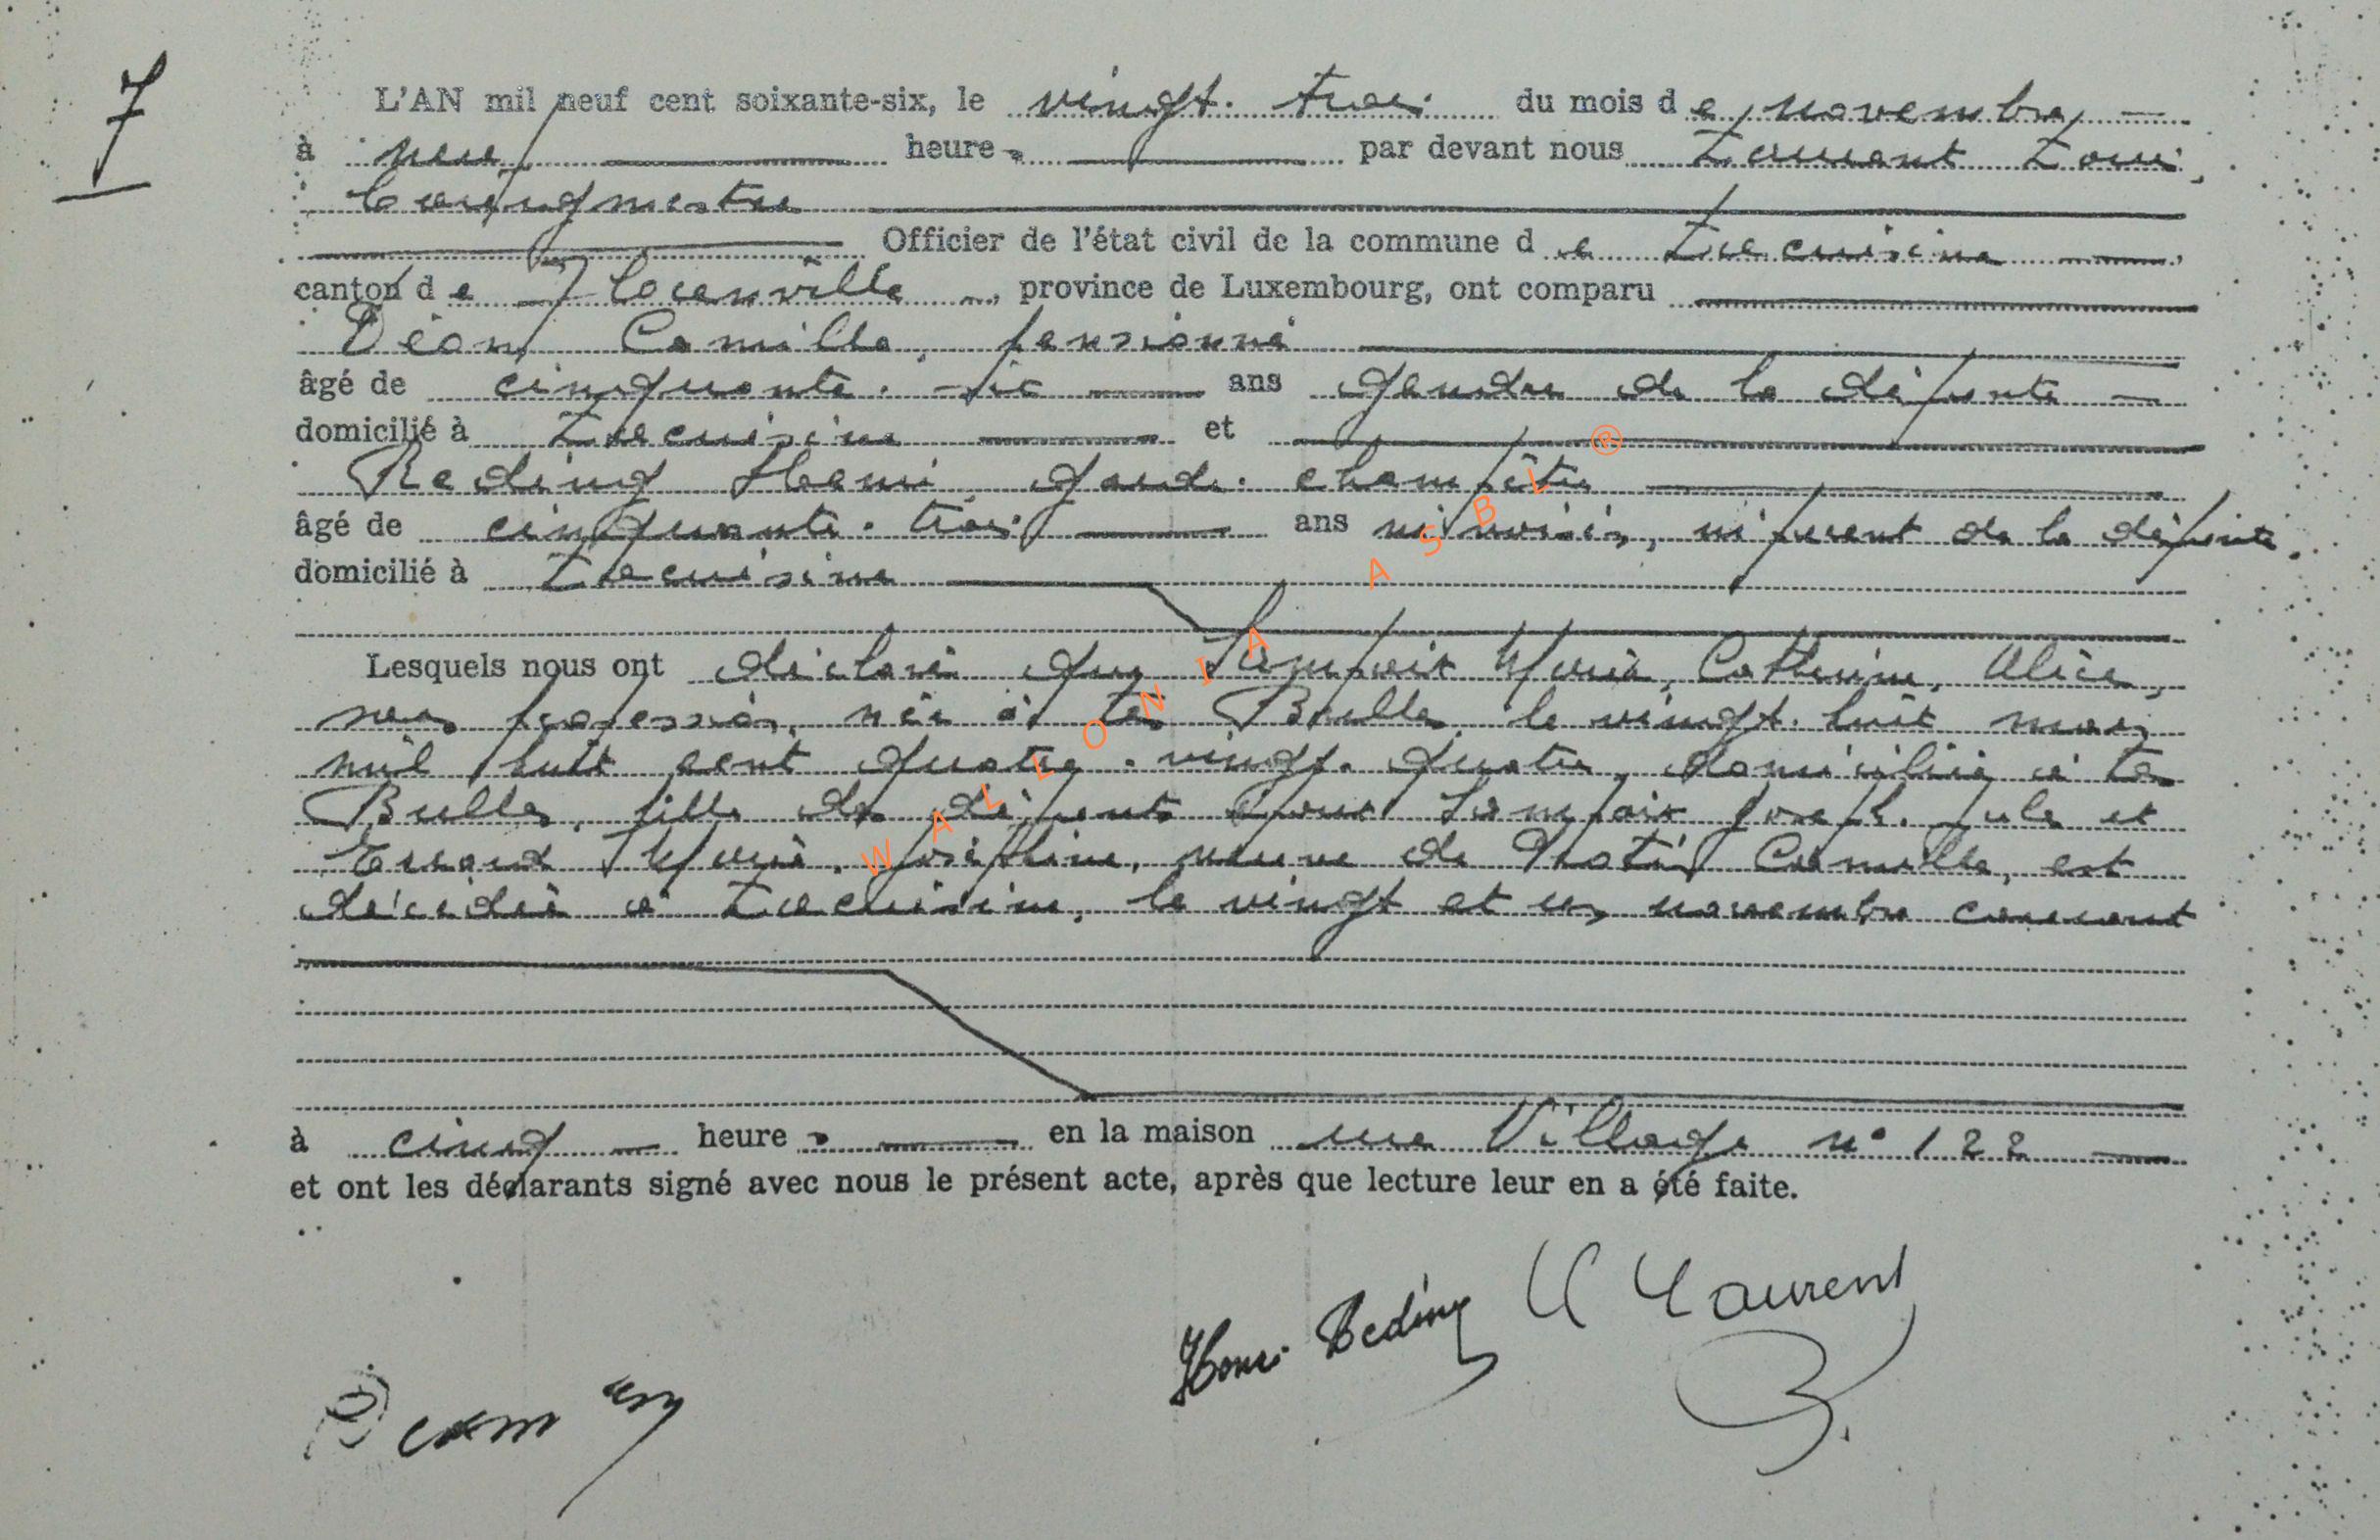 7
L'AN mil neuf cent soixante-six, le vingt-trois du mois de novembre
à neuf heures par devant nous Laurent Louis,
bourgmestre
Officier de l'état civil de la commune de Lacuisine,
canton de Florenville, province de Luxembourg, ont comparu
Déom Camille, pensionné
âgé de cinquante-six ans gendre de la défunte
domicilié à Lacuisine et
Reding Henri, garde-champêtre
âgé de cinquante-trois ans ni voisin, ni parent de la défunte,
domicilié à Lacuisine
Lesquels nous ont déclaré que Marie, Catherine, Alice,
sans profession, née à Les Bulles, le vingt-huit mars
mil huit cent quatre-vingt-quatre, domiciliée à Les
Bulles, fille des défunts époux Joseph, Jules et
Marie, Joséphine, veuve de Camille, est
décédée à Lacuisine, le vingt et un novembre courant
à cinq heures en la maison rue Village n° 122
et ont les déclarants signé avec nous le présent acte, après que lecture leur en a été faite.
Henri Reding L Laurent
Déom
WALLONIA ASBL ®